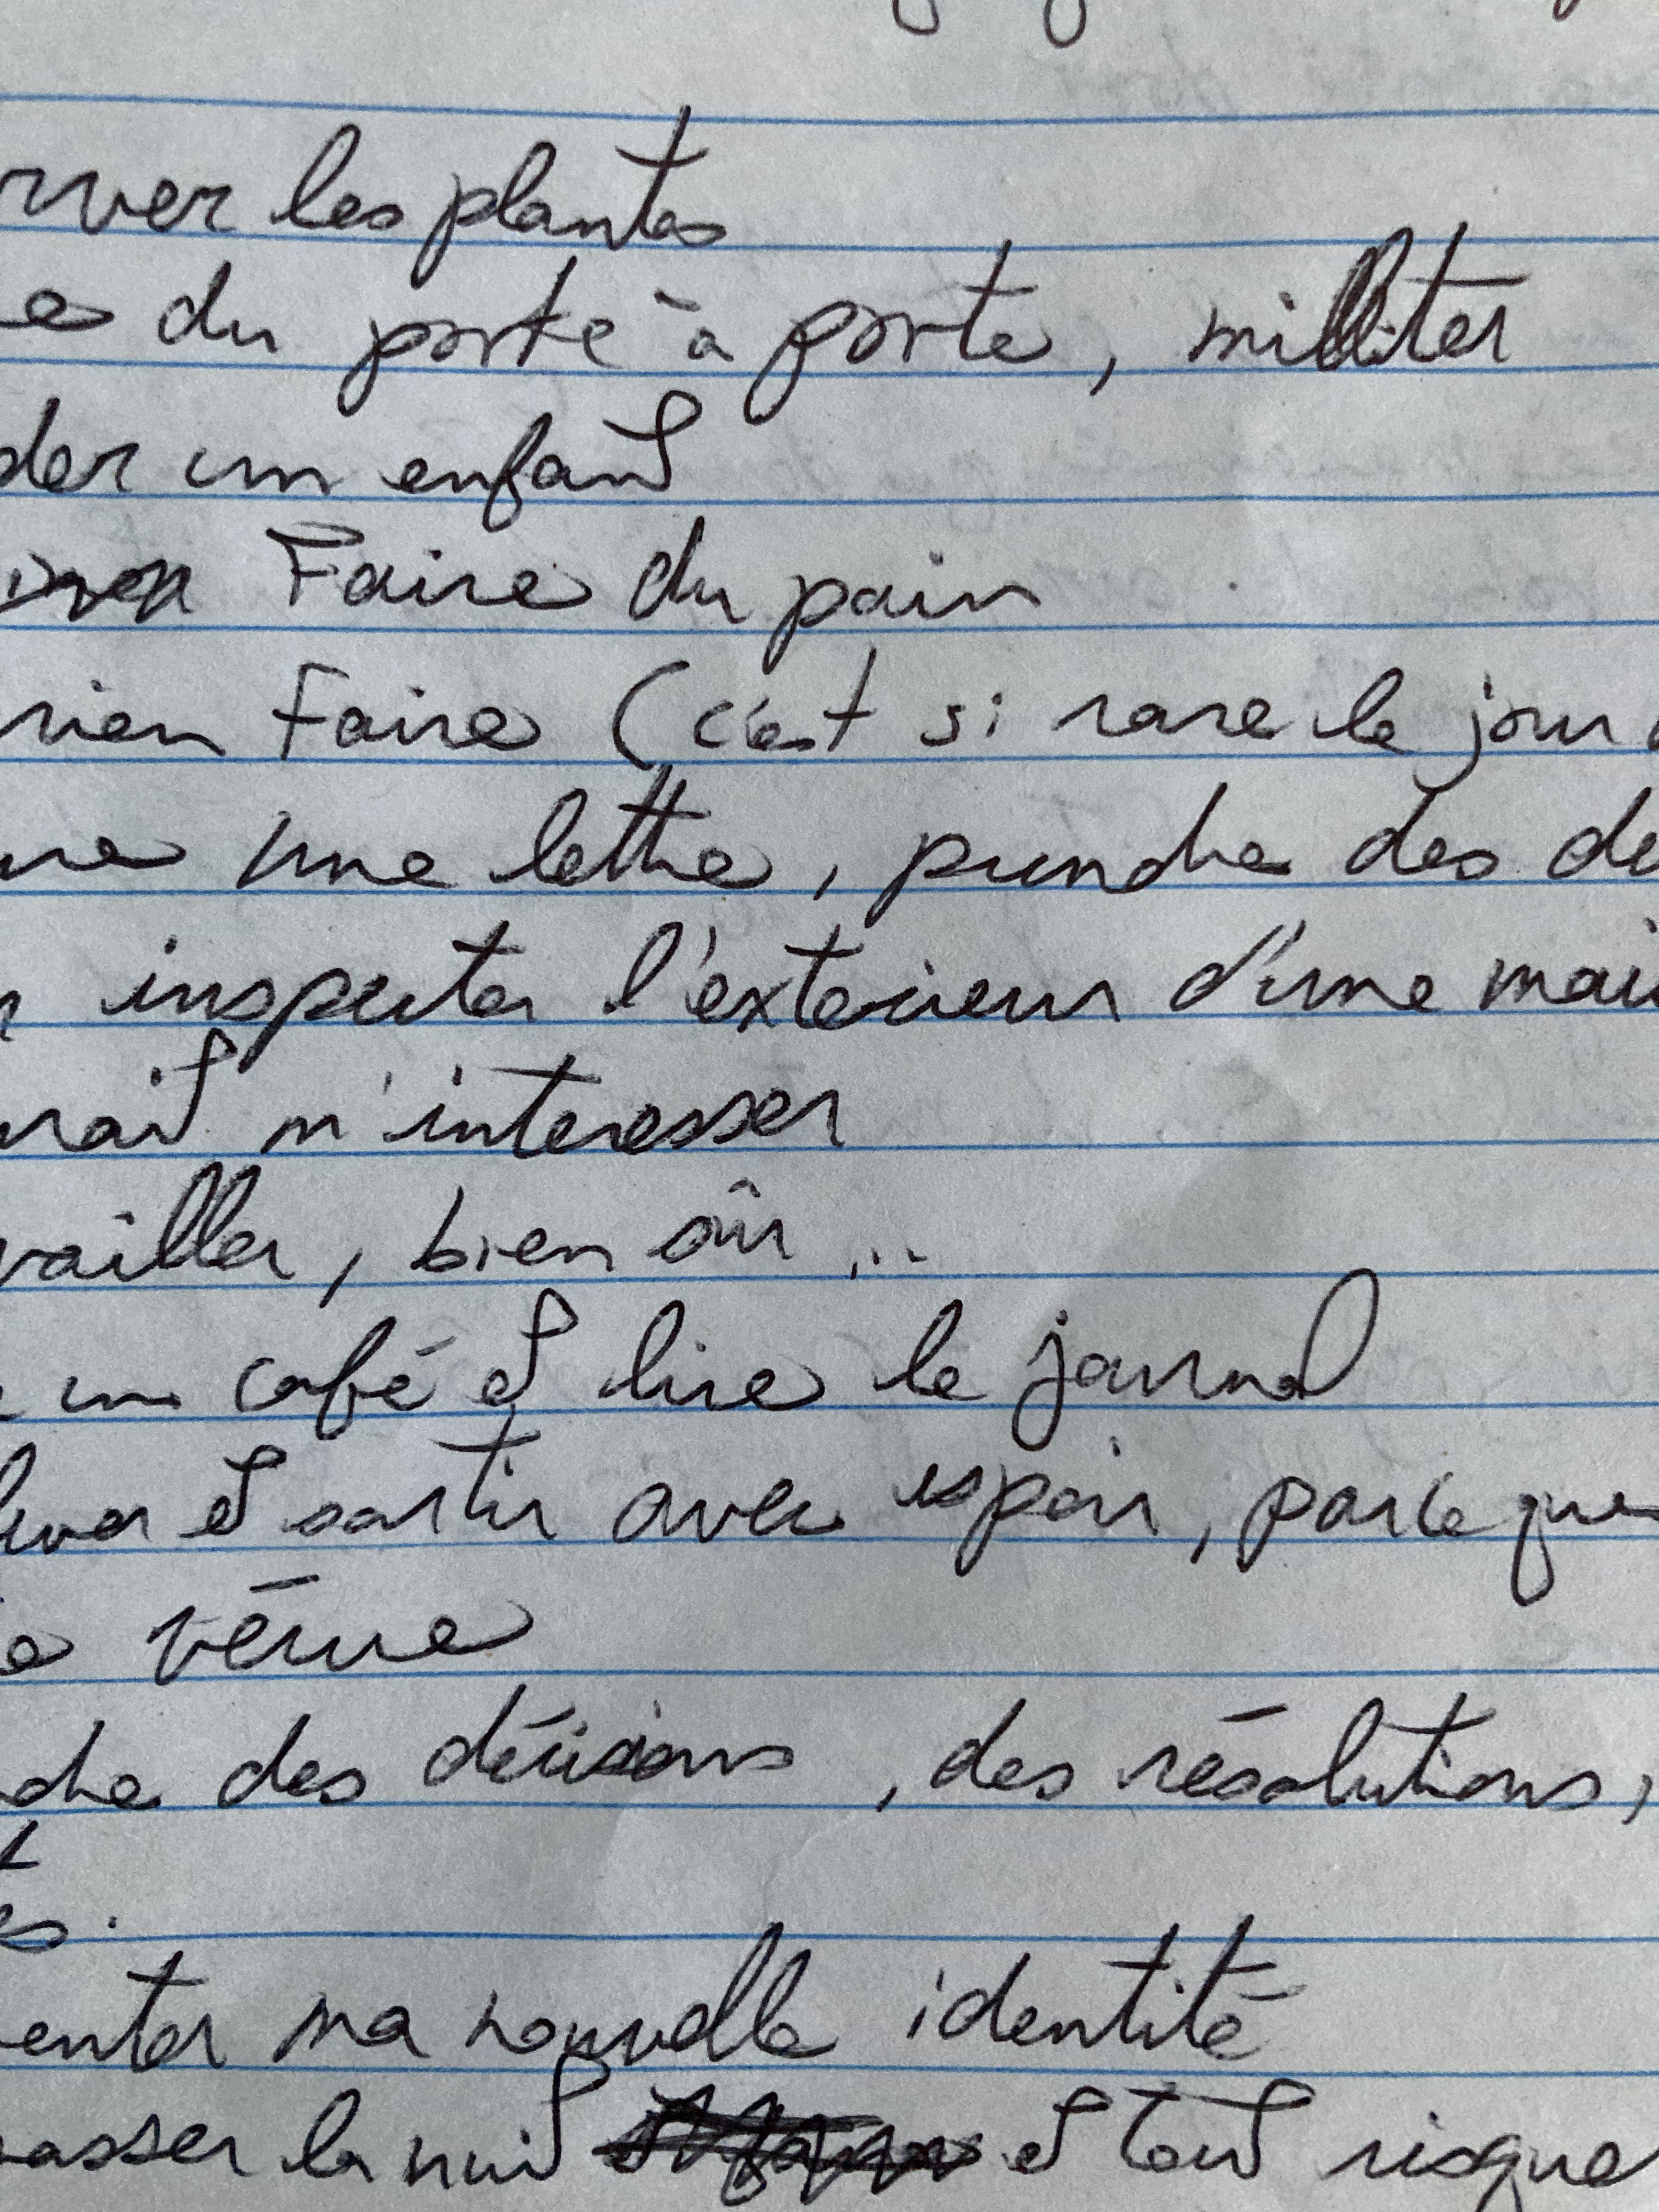 rver les plantes
e du porte à porte, militer
der un enfant
Faire du pain
rien Faire (c'est si rare le jour
une lettre, prendre des de
inspecter l'exterieur d'une mais
rait m'interesser
vailler, bien sûr ...
un café et lire le journal
lever et sortir avec espoir, parce que
e vérue
dre des décisions, des résolutions,
t
és.
enter ma nouvelle identité
asser la nuit et tout risque